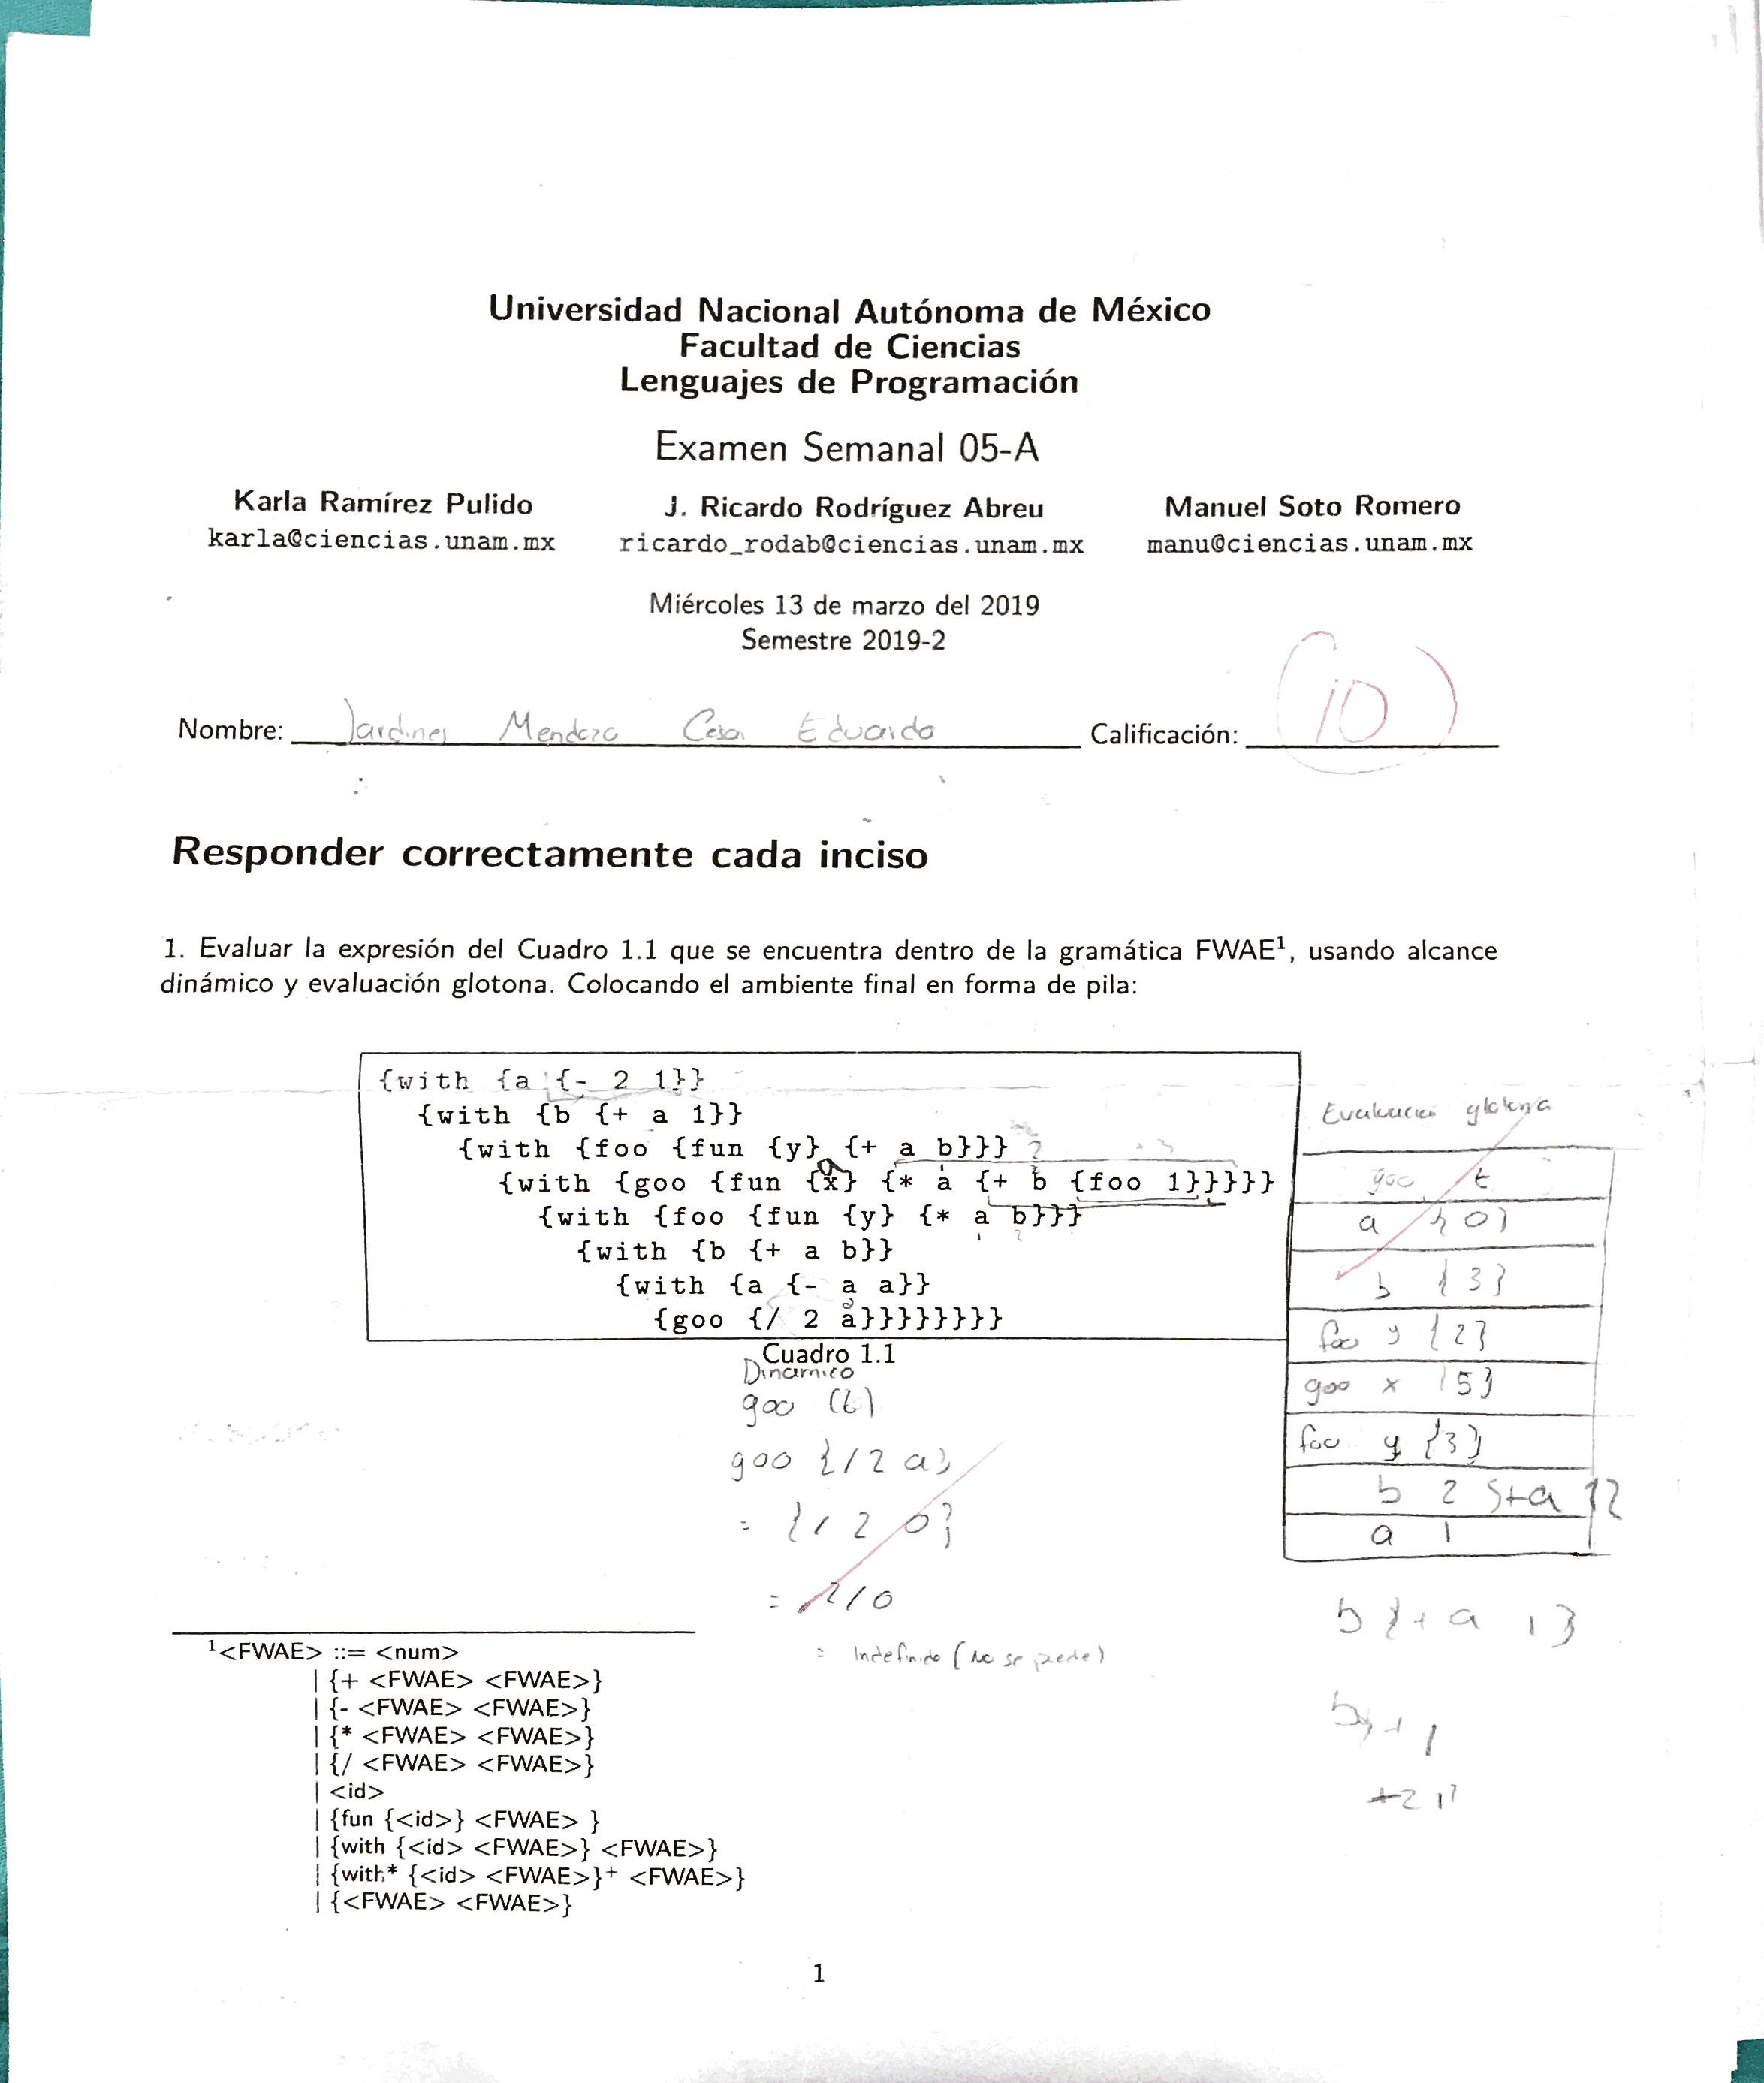 Universidad Nacional Autónoma de México
Facultad de Ciencias
Lenguajes de Programación
Examen Semanal 05-A
Karla Ramírez Pulido J. Ricardo Rodríguez Abreu Manuel Soto Romero
karla@ciencias.unam.mx ricardo_rodab@ciencias.unam.mx manu@ciencias.unam.mx
Miércoles 13 de marzo del 2019
Semestre 2019-2
Nombre: Jardines Mendoza Cesar Eduardo Calificación: 10
Responder correctamente cada inciso
1. Evaluar la expresión del Cuadro 1.1 que se encuentra dentro de la gramática FWAE¹, usando alcance
dinámico y evaluación glotona. Colocando el ambiente final en forma de pila:
{with {a {- 2 1}}
{with {b {+ a 1}}
{with {foo {fun {y} {+ a b}}}
{with {goo {fun {x} {* a {+ b {foo 1}}}}}
{with {foo {fun {y} {* a b}}}
{with {b {+ a b}}
{with {a {- a a}}
{goo {/ 2 a}}}}}}}}}
Cuadro 1.1
Evaluacion glotona
goo t
a {0}
b {3}
foo y {2}
goo x {5}
foo y {3}
b 2
a 1
b {+ a 1}
Dinamico
goo (t)
goo {/ 2 a}
= {/ 2 0}
= 2/0
= Indefinido (No se puede)
¹<FWAE> ::= <num>
| {+ <FWAE> <FWAE>}
| {- <FWAE> <FWAE>}
| {* <FWAE> <FWAE>}
| {/ <FWAE> <FWAE>}
| <id>
| {fun {<id>} <FWAE> }
| {with {<id> <FWAE>} <FWAE>}
| {with* {<id> <FWAE>}⁺ <FWAE>}
| {<FWAE> <FWAE>}
1